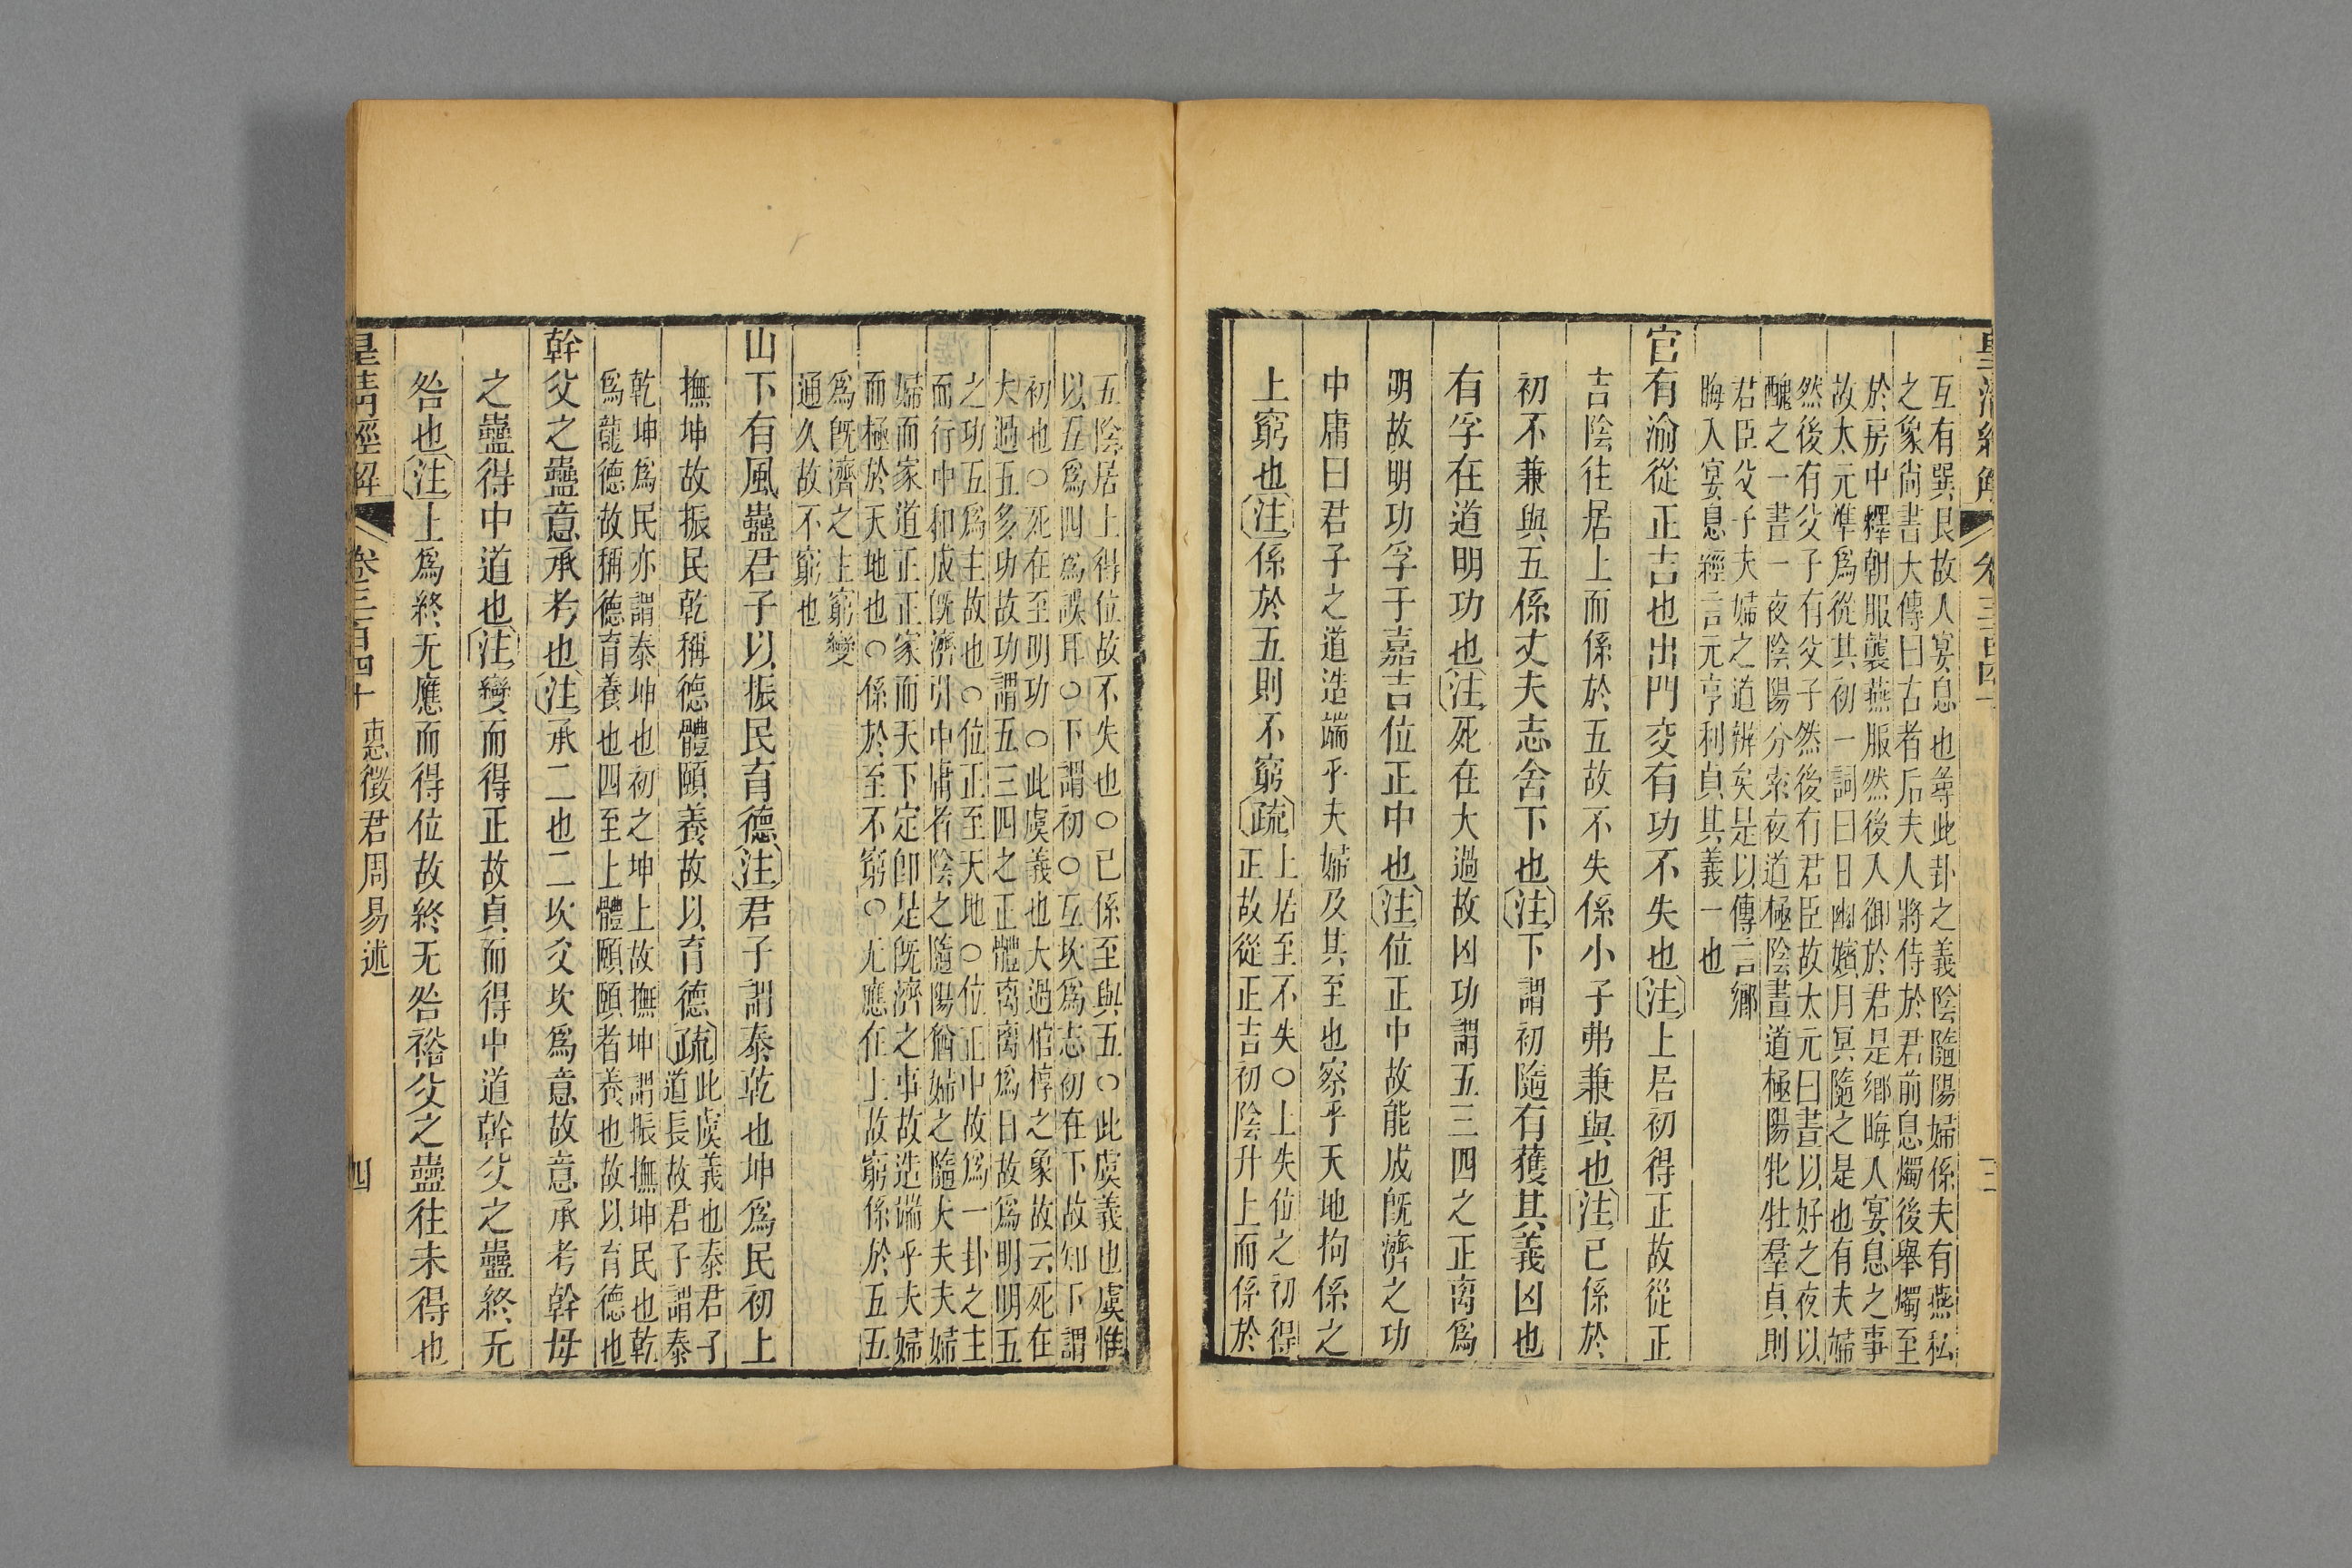 皇清經解
卷三百四十
三
互有巽艮故人宴息也尋此卦之義陰隨陽婦係夫有燕私
之象尙書大傳曰古者后夫人將侍於君前息燭後舉燭至
於房中釋朝服襲燕服然後入御於君是鄉晦入宴息之事
故太元準爲從其初一詞曰日幽嬪月冥隨之是也有夫婦
然後有父子有父子然後有君臣故太元曰晝以好之夜以
醜之一晝一夜陰陽分索夜道極陰晝道極陽牝牡羣貞則
君臣父子夫婦之道辨矣是以傳言鄉
晦入宴息經言元亨利貞其義一也
官有渝從正吉也出門交有功不失也注上居初得正故從正
吉陰往居上而係於五故不失係小子弗兼與也注已係於
初不兼與五係丈夫志舍下也注下謂初隨有獲其義凶也
有孚在道明功也注死在大過故凶功謂五三四之正离爲
明故明功孚于嘉吉位正中也注位正中故能成旣濟之功
中庸曰君子之道造端乎夫婦及其至也察乎天地拘係之
上窮也注係於五則不窮疏上居至不失○上失位之初得
正故從正吉初陰升上而係於
五陰居上得位故不失也○已係至與五○此虞義也虞惟
以五爲四爲誤耳○下謂初○互坎爲志初在下故知下謂
初也○死在至明功○此虞義也大過棺椁之象故云死在
大過五多功故功謂五三四之正體离离爲日故爲明明五
之功五爲主故也○位正至天地○位正中故爲一卦之主
而行中和成旣濟引中庸者陰之隨陽猶婦之隨夫夫婦
婦而家道正正家而天下定卽是旣濟之事故造端乎夫婦
而極於天地也○係於至不窮○无應在上故窮係於五五
爲旣濟之主窮變
通久故不窮也
山下有風蠱君子以振民育德注君子謂泰乾也坤爲民初上
撫坤故振民乾稱德體頤養故以育德疏此虞義也泰君子
道長故君子謂泰
乾坤爲民亦謂泰坤也初之坤上故撫坤謂振撫坤民也乾
爲龍德故稱德育養也四至上體頤頤者養也故以育德也
幹父之蠱意承考也注承二也二坎爻坎爲意故意承考幹母
之蠱得中道也注變而得正故貞而得中道幹父之蠱終无
咎也注上爲終无應而得位故終无咎裕父之蠱往未得也
皇清經解
卷三百四十
惠徵君周易述
四